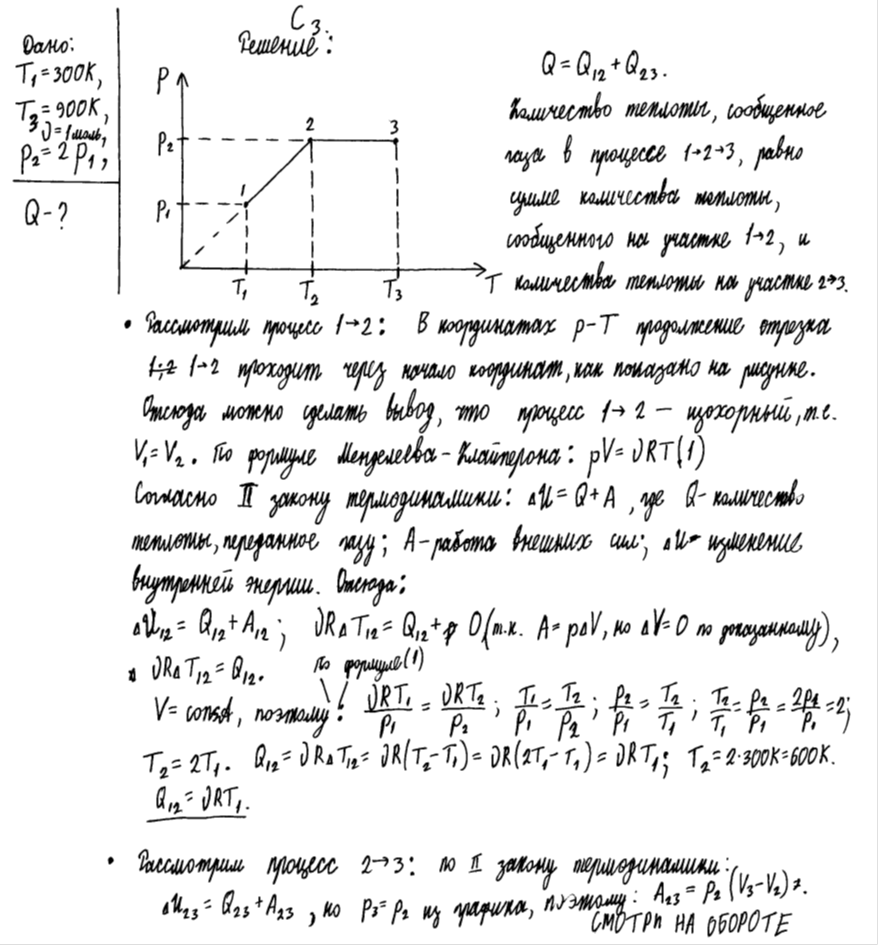 C3.
Дано:
T₁=300К,
T₃=900К,
ν=1моль,
p₂=2p₁,
Q-?
Решение:
p
p₂
p₁
1
2
3
T₁
T₂
T₃
T
Q = Q₁₂ + Q₂₃.
Количество теплоты, сообщенное
газа в процессе 1→2→3, равно
сумме количества теплоты,
сообщенного на участке 1→2, и
количества теплоты на участке 2→3.
• Рассмотрим процесс 1→2: В координатах p-T продолжение отрезка
1→2 проходит через начало координат, как показано на рисунке.
Отсюда можно сделать вывод, что процесс 1→2 — изохорный, т.е.
V₁=V₂. По формуле Менделеева-Клайперона: pV=νRT(1)
Согласно II закону термодинамики: ΔU=Q+A, где Q-количество
теплоты, переданное газу; A-работа внешних сил; ΔU- изменение
внутренней энергии. Отсюда:
ΔU₁₂= Q₁₂+A₁₂; νRΔT₁₂=Q₁₂+ 0(т.к. A=pΔV, но ΔV=0 по доказанному),
νRΔT₁₂=Q₁₂.
по формуле(1)
V=const, поэтому: νRT₁/p₁ = νRT₂/p₂; T₁/p₁=T₂/p₂; p₂/p₁=T₂/T₁; T₂/T₁=p₂/p₁=2p₁/p₁=2;
T₂=2T₁. Q₁₂=νRΔT₁₂=νR(T₂-T₁)=νR(2T₁-T₁)=νRT₁; T₂=2·300К=600К.
Q₁₂=νRT₁.
• Рассмотрим процесс 2→3: по II закону термодинамики:
ΔU₂₃=Q₂₃+A₂₃, но p₃=p₂ из графика, поэтому: A₂₃=p₂(V₃-V₂).
СМОТРИ НА ОБОРОТЕ